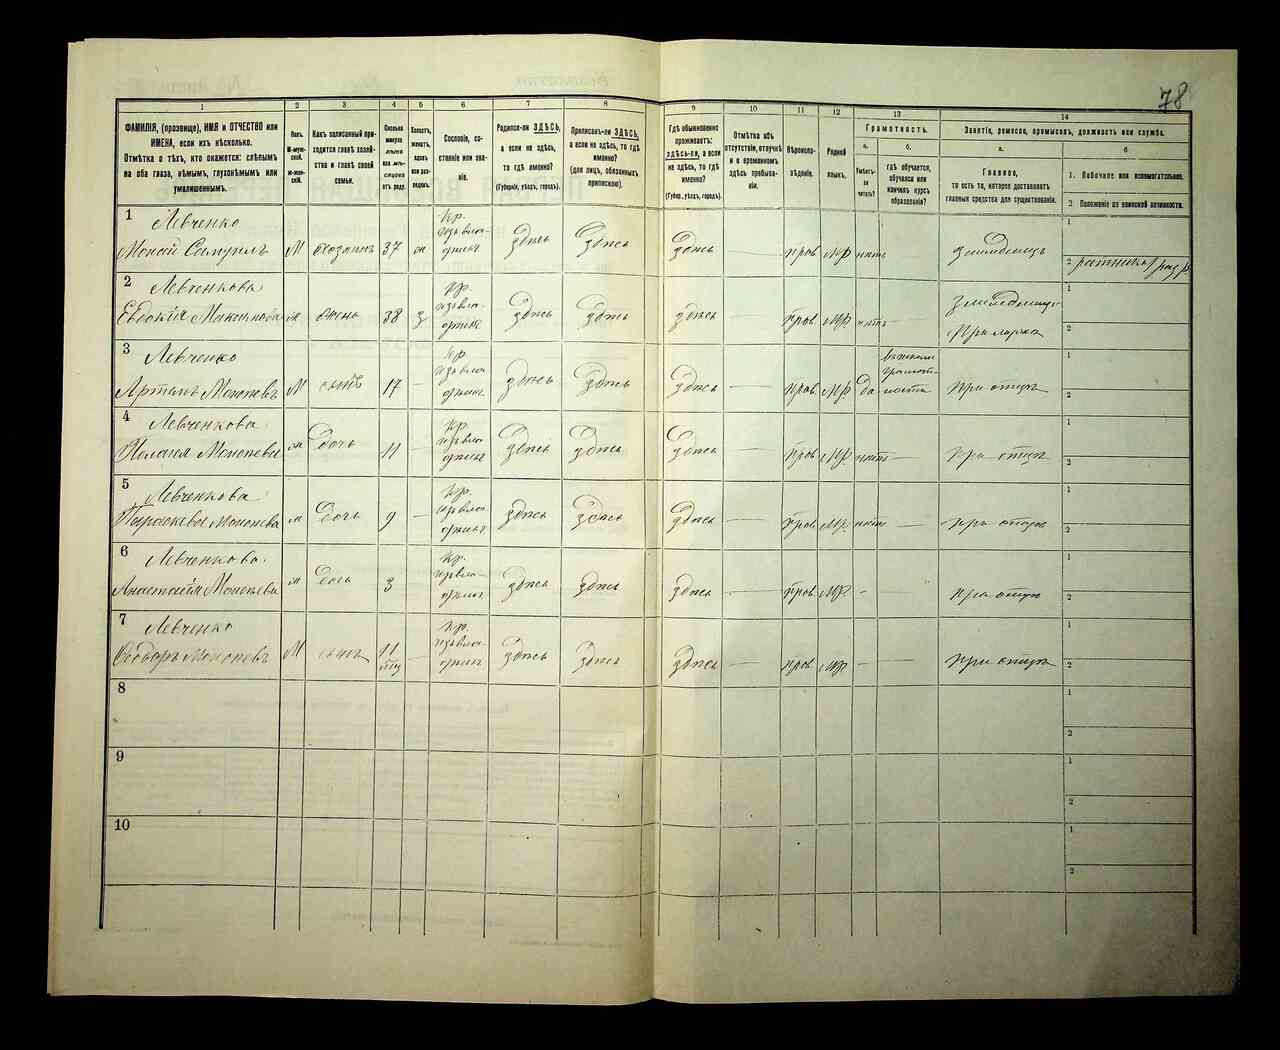 78
1 2 3 4 5 6 7 8 9 10 11 12 13 14
ФАМИЛІЯ, (прозвище), ИМЯ и ОТЧЕСТВО или
ИМЕНА, если ихъ нѣсколько.
Отмѣтка о тѣхъ, кто окажется: слѣпымъ
на оба глаза, нѣмымъ, глухонѣмымъ или
умалишеннымъ.
Полъ.
М-мужской.
Ж-женскій.
Какъ записанный при-
ходится главѣ хозяй-
ства и главѣ своей
семьи.
Сколько
минуло
лѣтъ
или мѣ-
сяцевъ
отъ роду.
Холостъ,
женатъ,
вдовъ
или раз-
веденъ.
Сословіе, со-
стояніе или зва-
ніе.
Родился-ли ЗДѢСЬ,
а если не здѣсь,
то гдѣ именно?
(Губернія, уѣздъ, городъ).
Приписанъ-ли ЗДѢСЬ,
а если не здѣсь, то гдѣ
именно?
(для лицъ, обязанныхъ
припискою).
Гдѣ обыкновенно
проживаетъ:
здѣсь-ли, а если
не здѣсь, то гдѣ
именно?
(Губер., уѣздъ, городъ).
Отмѣтка объ
отсутствіи, отлучкѣ
и о временномъ
здѣсь пребыва-
ніи.
Вѣроиспо-
вѣданіе.
Родной
языкъ.
Грамотность.
а. б.
Умѣетъ-
ли
читать?
гдѣ обучается,
обучался или
кончилъ курсъ
образованія?
Занятіе, ремесло, промыселъ, должность или служба.
а. б
Главное,
то есть то, которое доставляетъ
главныя средства для существованія.
1. Побочное или вспомогательное.
2 Положеніе по воинской повинности.
1 Левченко 1
Мокѣй Самуилъ М хозяинъ 37 ж Кр. изъ вла- дѣльч здѣсь здѣсь здѣсь — прав. МР нѣтъ — земледѣлецъ 2 ратникъ
2 Левченкова 1
Евдокія ж жена 38 з Кр. изъ вла- дѣльч здѣсь здѣсь здѣсь — прав. МР нѣтъ 2
3 Левченко 1
М сынъ 17 — Кр. изъ вла- дѣльч здѣсь здѣсь здѣсь — прав. МР да при отцѣ 2
4 Левченкова 1
ж дочь 11 — Кр. изъ вла- дѣльч здѣсь здѣсь здѣсь — прав. МР нѣтъ — при отцѣ 2
5 Левченкова 1
ж дочь 9 — Кр. изъ вла- дѣльч здѣсь здѣсь здѣсь — прав. МР нѣтъ — при отцѣ 2
6 Левченкова 1
Анастасія ж дочь 3 Кр. изъ вла- дѣльч здѣсь здѣсь здѣсь — прав. МР - — при отцѣ 2
7 Левченко 1
Ѳеодоръ М сынъ 11 — Кр. изъ вла- дѣльч здѣсь здѣсь здѣсь — прав. МР - — при отцѣ 2
8 1
2
9 1
2
10 1
2